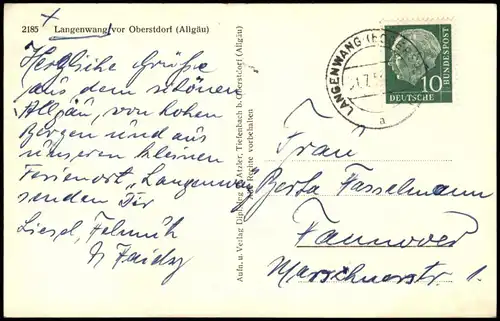 2185 Langenwang vor Oberstdorf (Allgäu)
Herzliche Grüße
aus dem schönen
Allgäu, von hohen
Bergen und aus
unserem kleinen
Ferienort „Langenwang"
senden Dir
Liesel, Helmuth
Aufn. u. Verlag Tiefenbach b. Oberstdorf (Allgäu)
Alle Rechte vorbehalten
LANGENWANG
a
10
DEUTSCHE
BUNDESPOST
Frau
Berta Fasselmann
Hannover
Marschnerstr. 1.